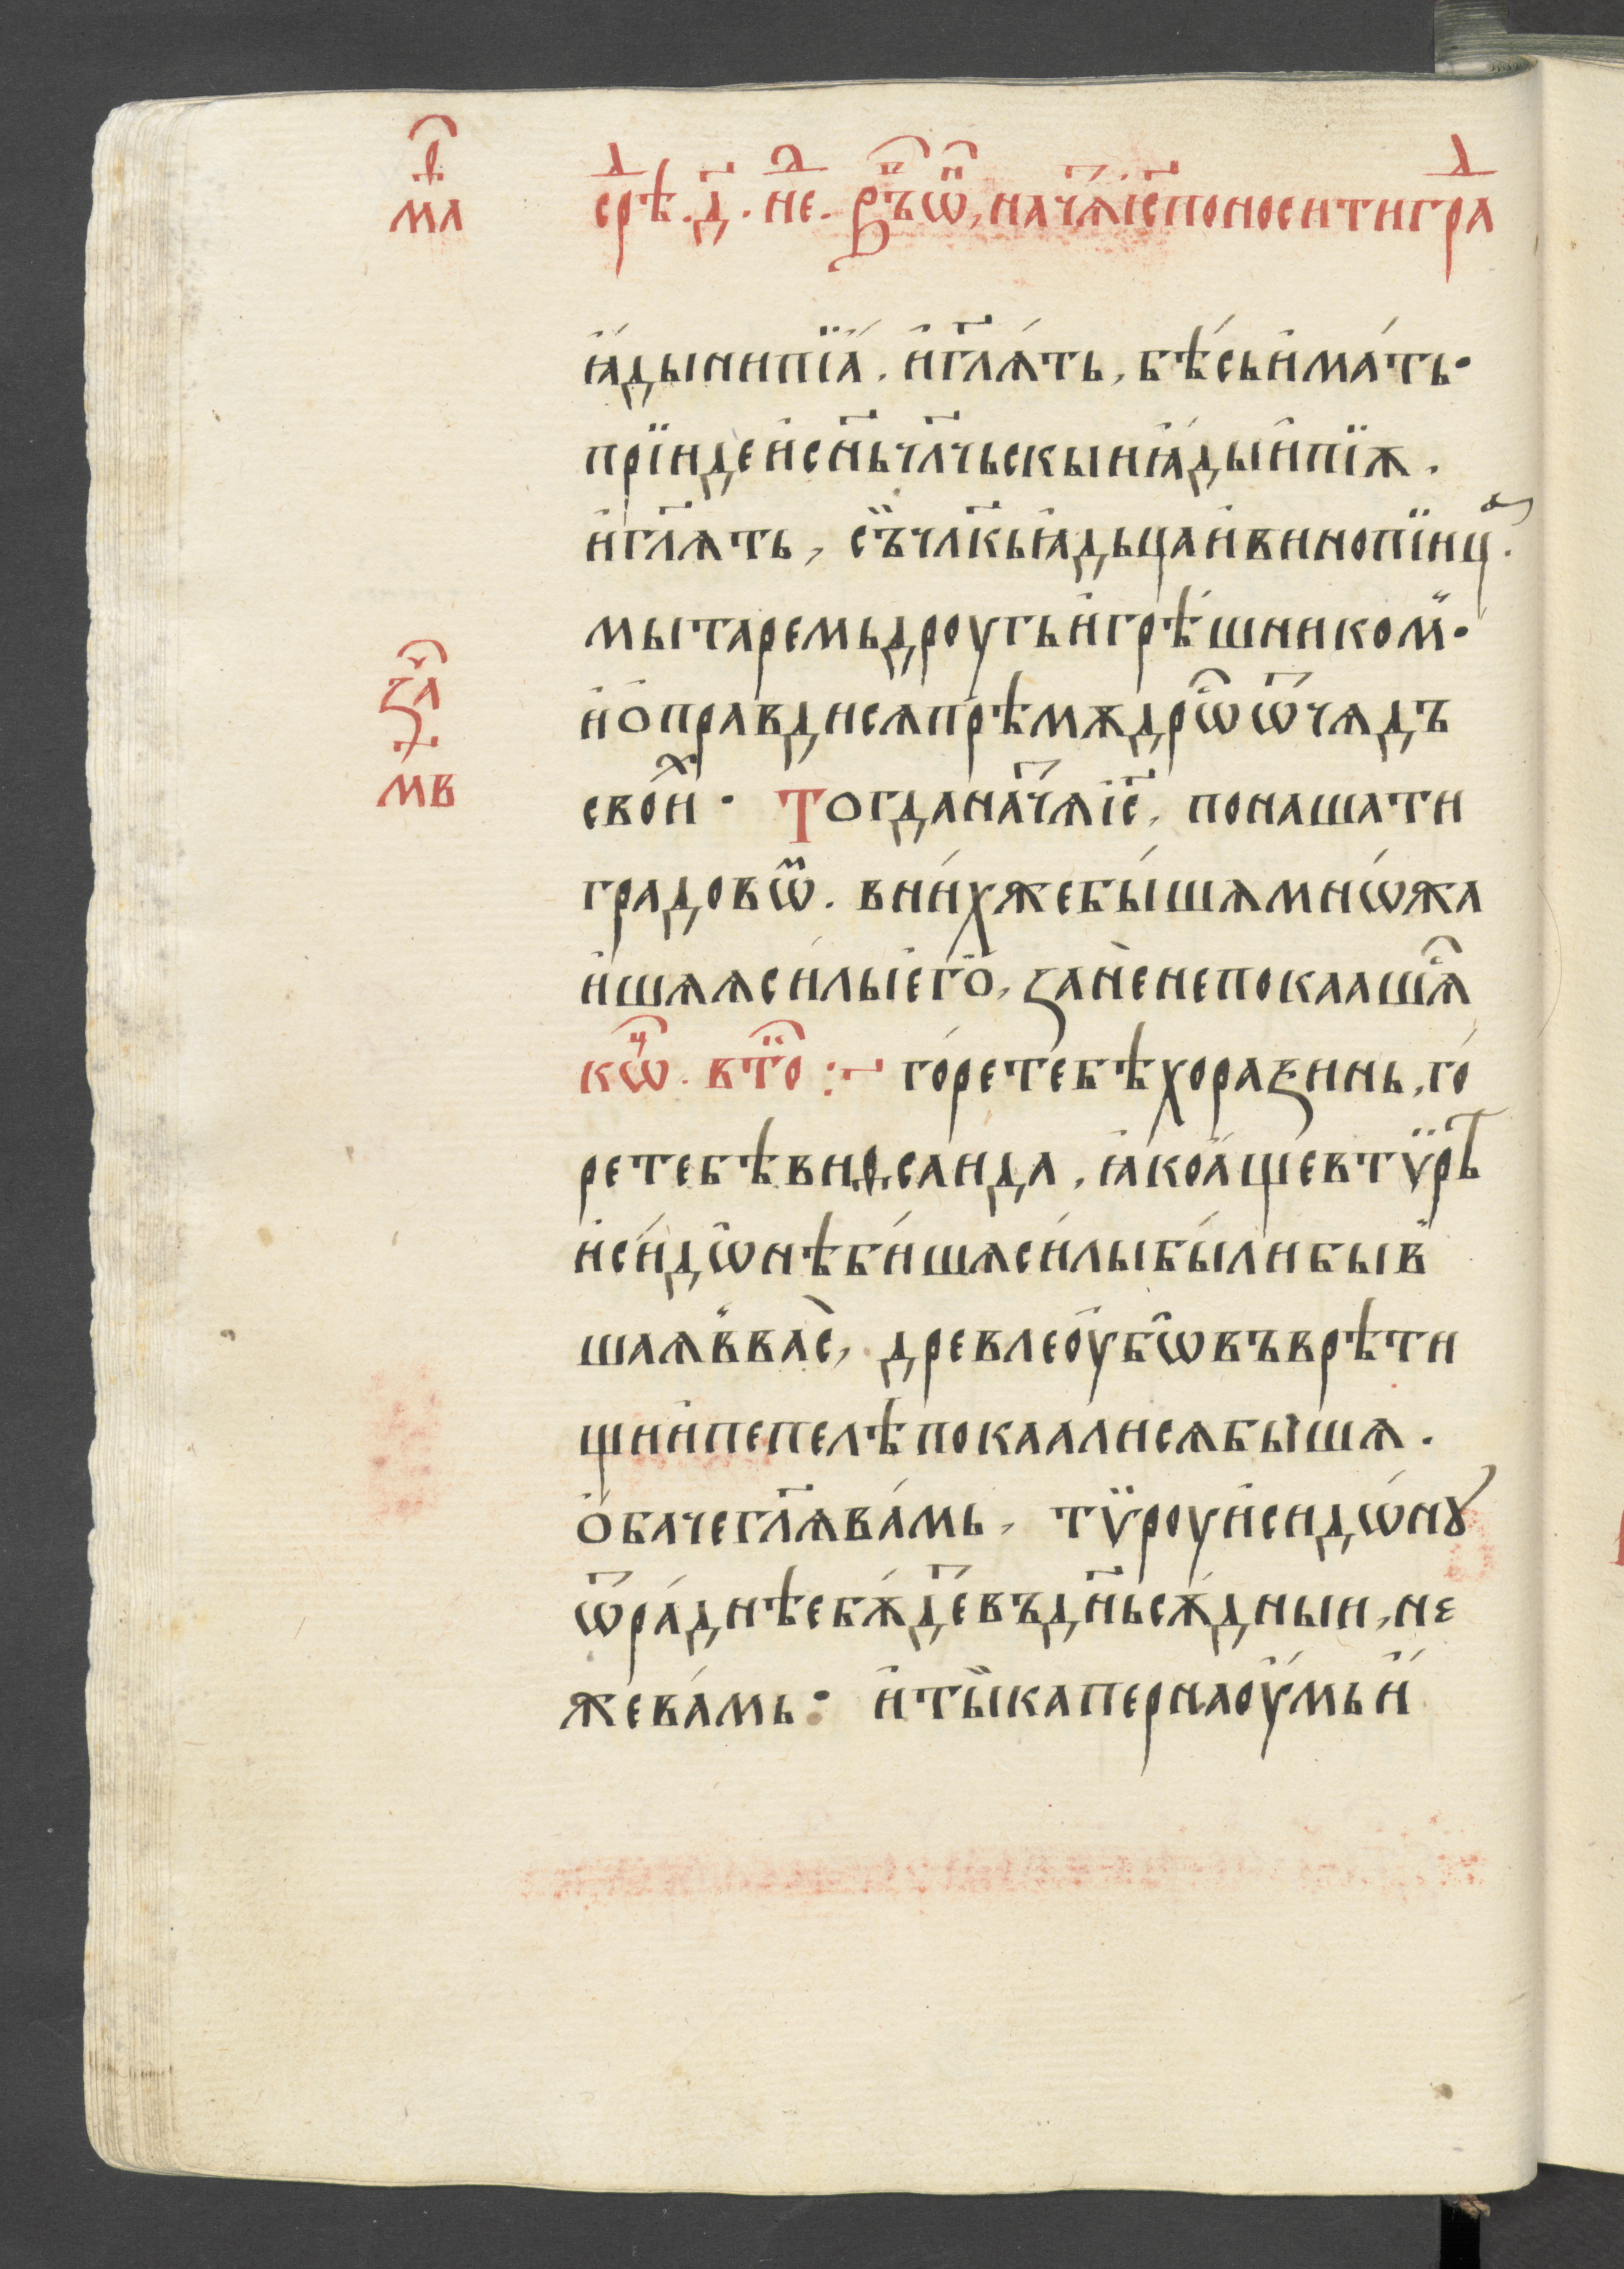 в҃
ма
срѣⷣ. д҃. неⷣ. Въ ѡ҃, нача і҃с поносити граⷣ
ꙗ́ды ни пїѧ́. и҆ гл҃ѧ́ть, бѣ́сь и҆ма́ть·
прїиде и҆ сн҃ь чл҃чьскыи ꙗ҆́ды и҆ пїѫ.
и҆ гл҃ѧть, съ̏ чл҃кь ꙗ҆дьца и҆ винопїицаⷶ.
мытаремь дроугь и҆ грѣ́шникоⷨ·
и҆ ѡ҆правдисѧ прѣмѫдрѡⷭ ѿ чѧдъ
своиⷯ· Тогда нача́ѧ і҃с, понашати
градовѡⷨ. в ни́хже бы́шѧ мнѡ́жа
и҆шѧѧ си́лы є҆го̀, зане̏ не покаашѧⷭ
коⷩ҇. втоⷬ :~ го́ре тебѣ хоразинь, го́
ре тебѣ виѳсаида, ꙗ҆ко а҆́ще в тѷрѣ
и҆ си́дѡнѣ би́шѧ си́лы бы́ли быв
шаѧ в ва̏с, древле оу҆бѡ въ врѣти
щи и҆ пепелѣ покаали сѧ бы̏шѧ.
ѻ҆баче гл҃ѧ ва́мь, тѷроу и҆ сидѡ́нꙋ
ѿра́днѣе бѫ́деⷮ въ дн҃ь сѫ́дныи, не
же ва́мь: и҆ ты̏ капернаоу́мь и҆́
заⷱ҇
мв